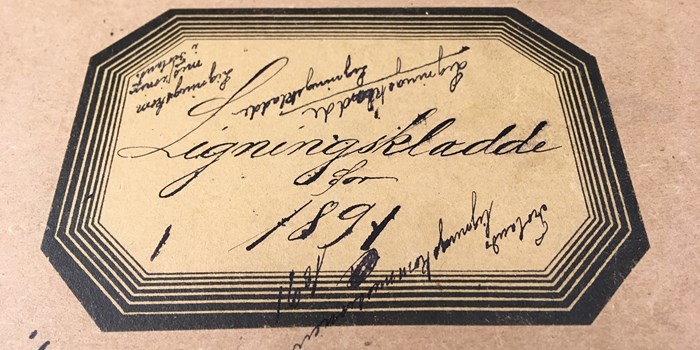 Ligningskladde
for
1891
Ligningskladde
Ligningskladde
Ligningskom
i
Froland
Froland
Ligningskommissionen
1891